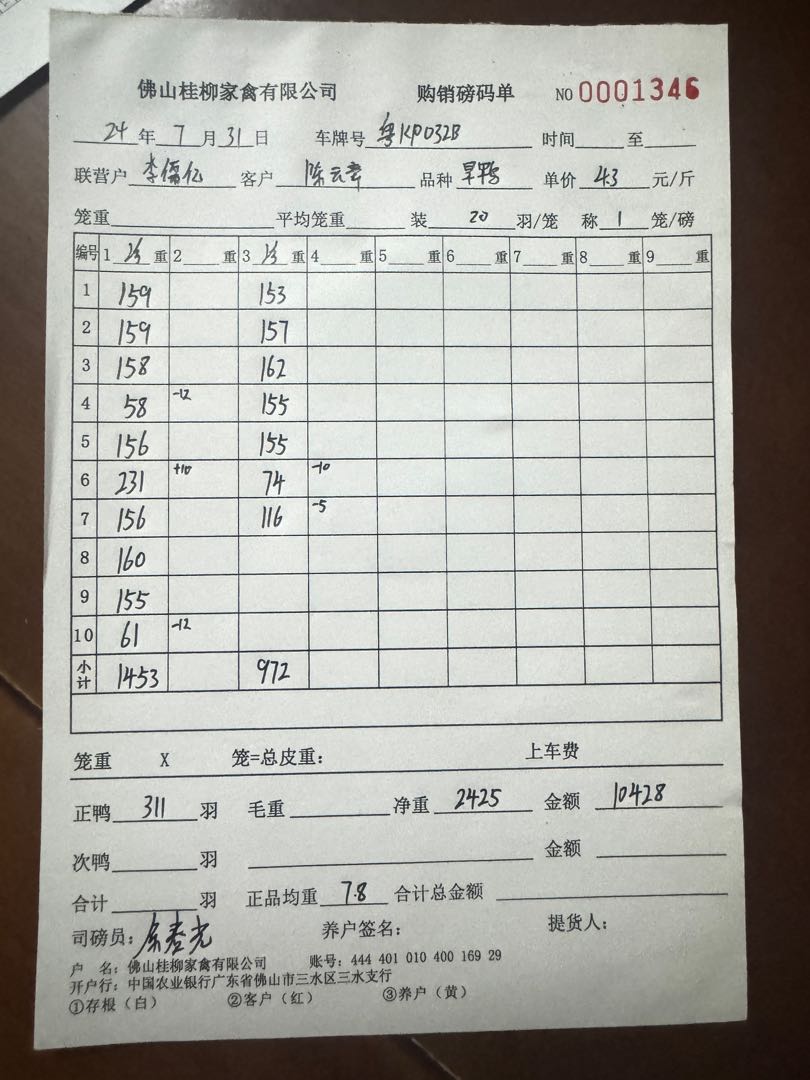 佛山桂柳家禽有限公司 购销磅码单 NO 0001346
24 年 7 月 31 日 车牌号 粤KP032B 时间 至
联营户 李儒亿 客户 陈云章 品种 旱鸭 单价 4.3 元/斤
笼重 平均笼重 装 20 羽/笼 称 1 笼/磅
编号 1 净 重 2 重 3 净 重 4 重 5 重 6 重 7 重 8 重 9 重
1 159 153
2 159 157
3 158 162
4 58 -12 155
5 156 155
6 231 +10 74 -10
7 156 116 -5
8 160
9 155
10 61 -12
小计 1453 972
笼重 X 笼=总皮重: 上车费
正鸭 311 羽 毛重 净重 2425 金额 10428
次鸭 羽 金额
合计 羽 正品均重 7.8 合计总金额
司磅员: 养户签名: 提货人:
户 名: 佛山桂柳家禽有限公司 账号: 444 401 010 400 169 29
开户行: 中国农业银行广东省佛山市三水区三水支行
①存根(白) ②客户(红) ③养户(黄)